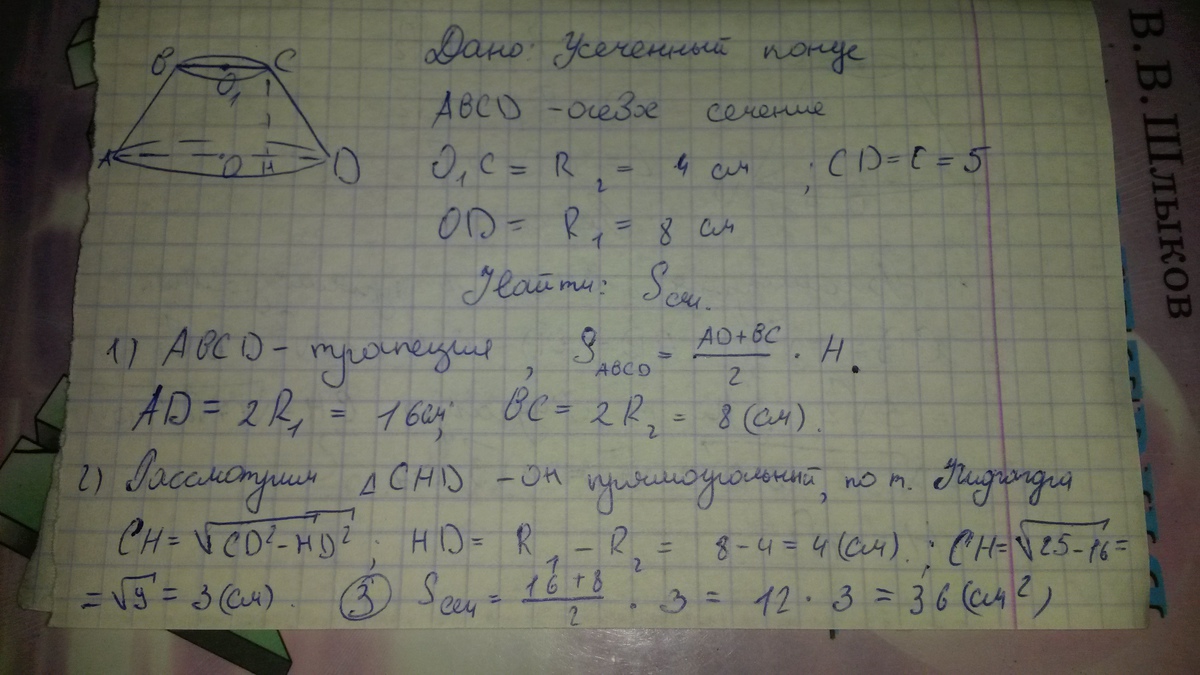 B O₁ C
A O H D
Дано: Усеченный конус
ABCD – осевое сечение
O₁C = R₂ = 4 см ; CD = C = 5
OD = R₁ = 8 см
Найти: Sсеч.
1) ABCD – трапеция, S_ABCD = (AD+BC)/2 · H.
AD = 2R₁ = 16см; BC = 2R₂ = 8 (см).
2) Рассмотрим △CHD – он прямоугольный, по т. Пифагора
CH = √(CD² – HD²) ; HD = R₁ – R₂ = 8 – 4 = 4 (см). ; CH = √(25–16) =
= √9 = 3 (см). 3) Sсеч = (16+8)/2 · 3 = 12 · 3 = 36 (см²)
В. В. Шлыков